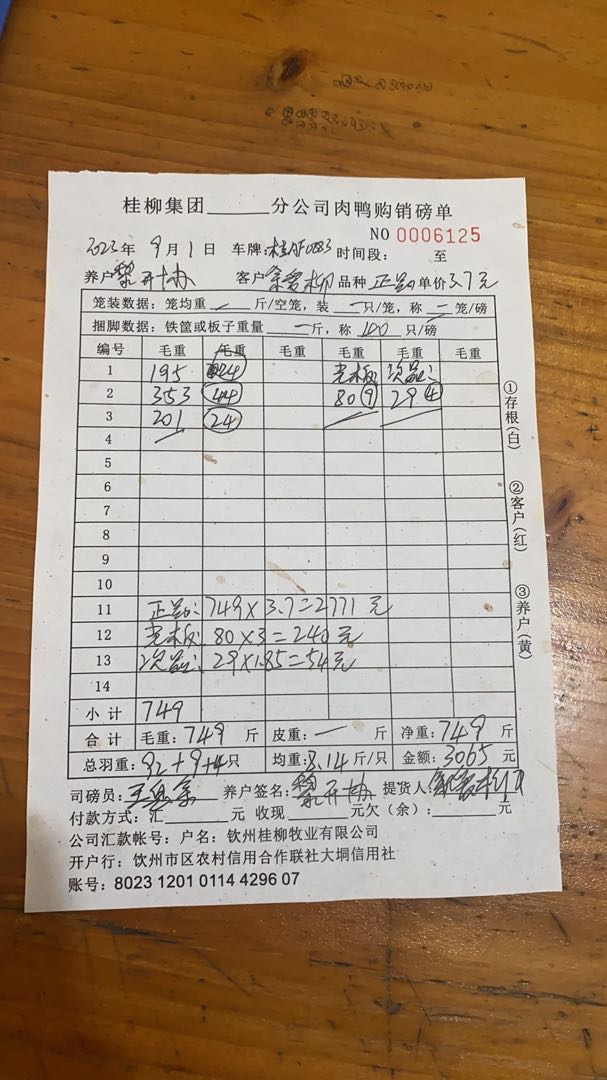 桂柳集团______分公司肉鸭购销磅单
NO 0006125
2023年 9月1日 车牌: 0883 时间段: 至
养户 黎开协 客户 柳 品种 正品 单价3.7元
笼装数据: 笼均重 — 斤/空笼, 装 — 只/笼, 称 — 笼/磅
捆脚数据: 铁筐或板子重量 — 斤, 称 100 只/磅
编号 毛重 毛重 毛重 毛重 毛重 毛重
1 195 24 毛板 次品:
2 353 44 80 9 29 4
3 201 24
4
5
6
7
8
9
10
11 正品: 749×3.7=2771元
12 毛板: 80×3=240元
13 次品: 29×1.85=54元
14
小计 749
合计 毛重: 749 斤 皮重: — 斤 净重: 749 斤
总羽重: 92+9+4只 均重: 8.14斤/只 金额: 3065 元
司磅员: 养户签名: 黎开协 提货人:
付款方式: 汇______元 收现______元欠(余):______元
公司汇款帐号: 户名: 钦州桂柳牧业有限公司
开户行: 钦州市区农村信用合作联社大垌信用社
账号: 8023 1201 0114 4296 07
①存根(白)
②客户(红)
③养户(黄)